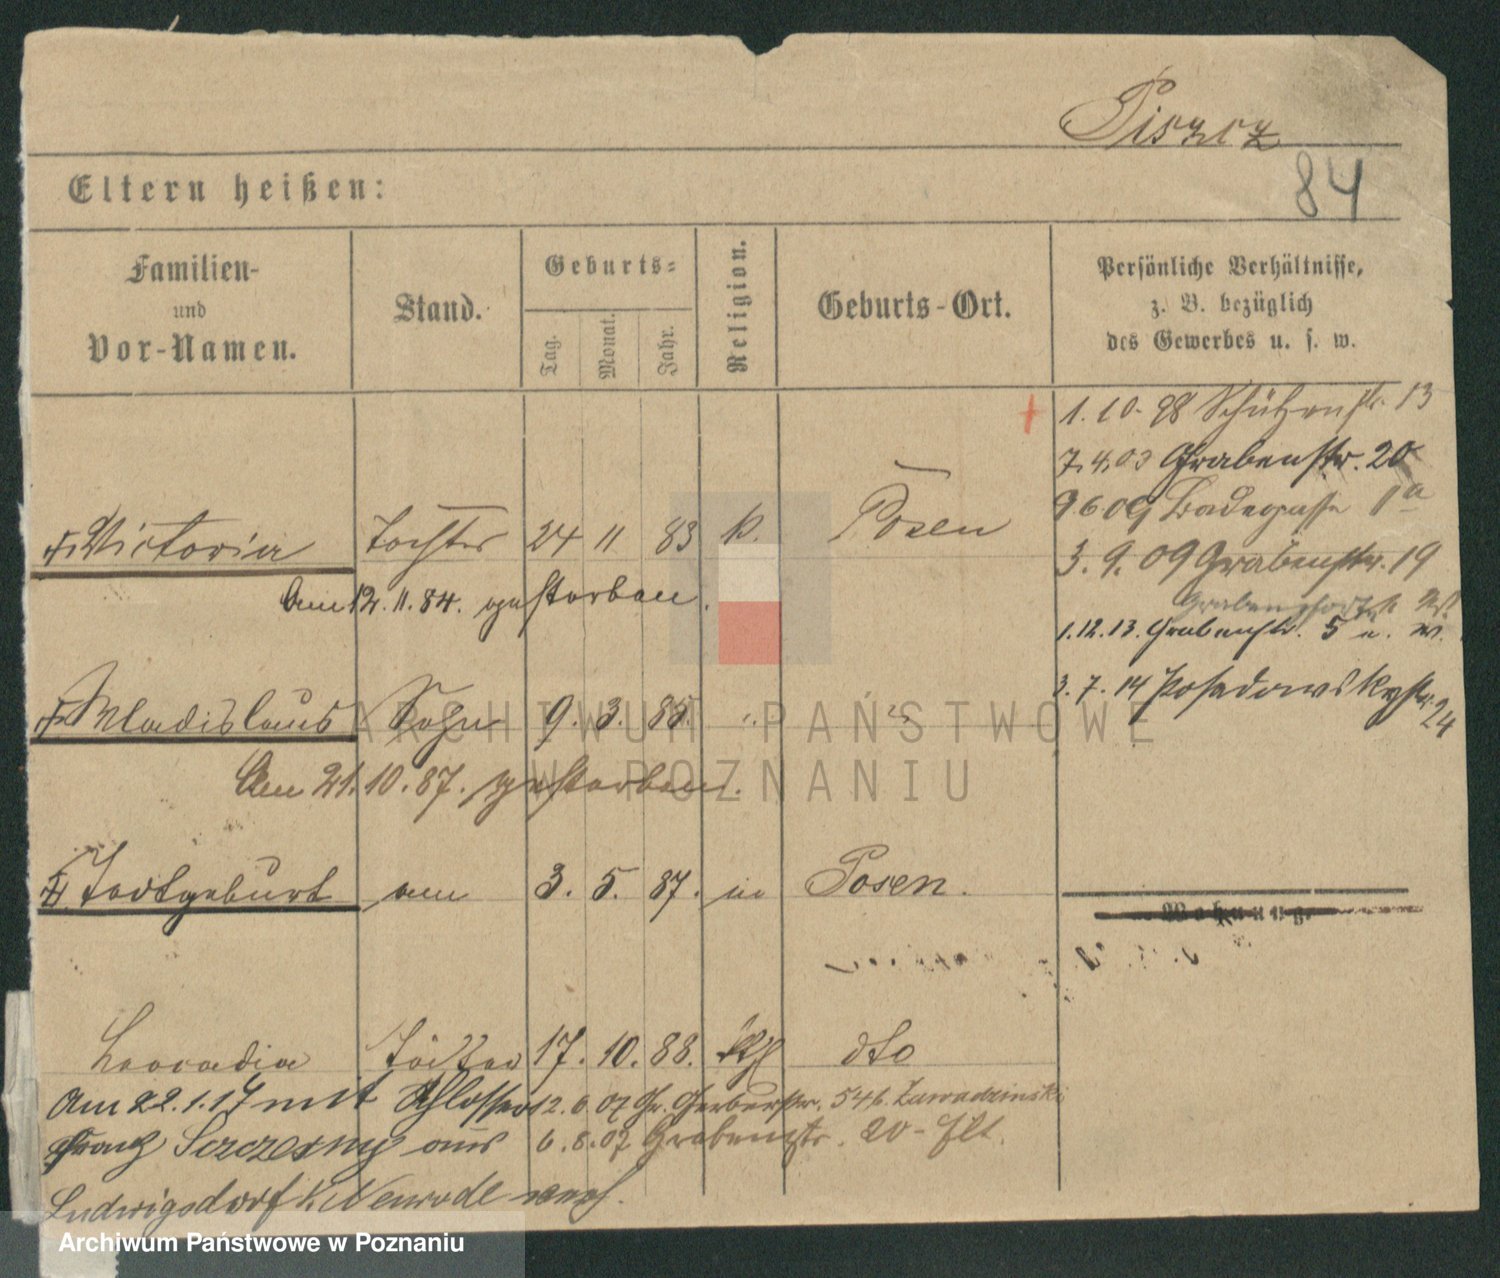 Piszcz
84
Eltern heißen:
Familien- und Vor-Namen.
Stand.
Geburts-
Tag.
Monat.
Jahr.
Religion.
Geburts-Ort.
Persönliche Verhältnisse, z. B. bezüglich des Gewerbes u. s. w.
1.10.98 Schützenstr. 13
7.4.03 Grabenstr. 20
9 6 09 Badegasse 1a
3.9.09 Grabenstr. 19
1.12.13. Grabenstr. 5
3.7.14 Posadowskystr. 24
Victoria Tochter 24 11 83 k. Posen
Am 12.11.84. gestorben.
Wladislaus Sohn 9. 3. 85. " "
Am 21.10.87. gestorben.
Todtgeburt am 3. 5. 87. in Posen.
Wohnung.
Leocadia Tochter 17. 10. 88. kth dto
Am 22.1.17 mit Schlosser 12. 07 Gr. Gerberstr. 54 b. Zawadzinski
Franz Szczesny aus 6.8.07 Grabenstr. 20-
Ludwigsdorf K. Neurode verh.
ARCHIWUM PAŃSTWOWE
W POZNANIU
Archiwum Państwowe w Poznaniu